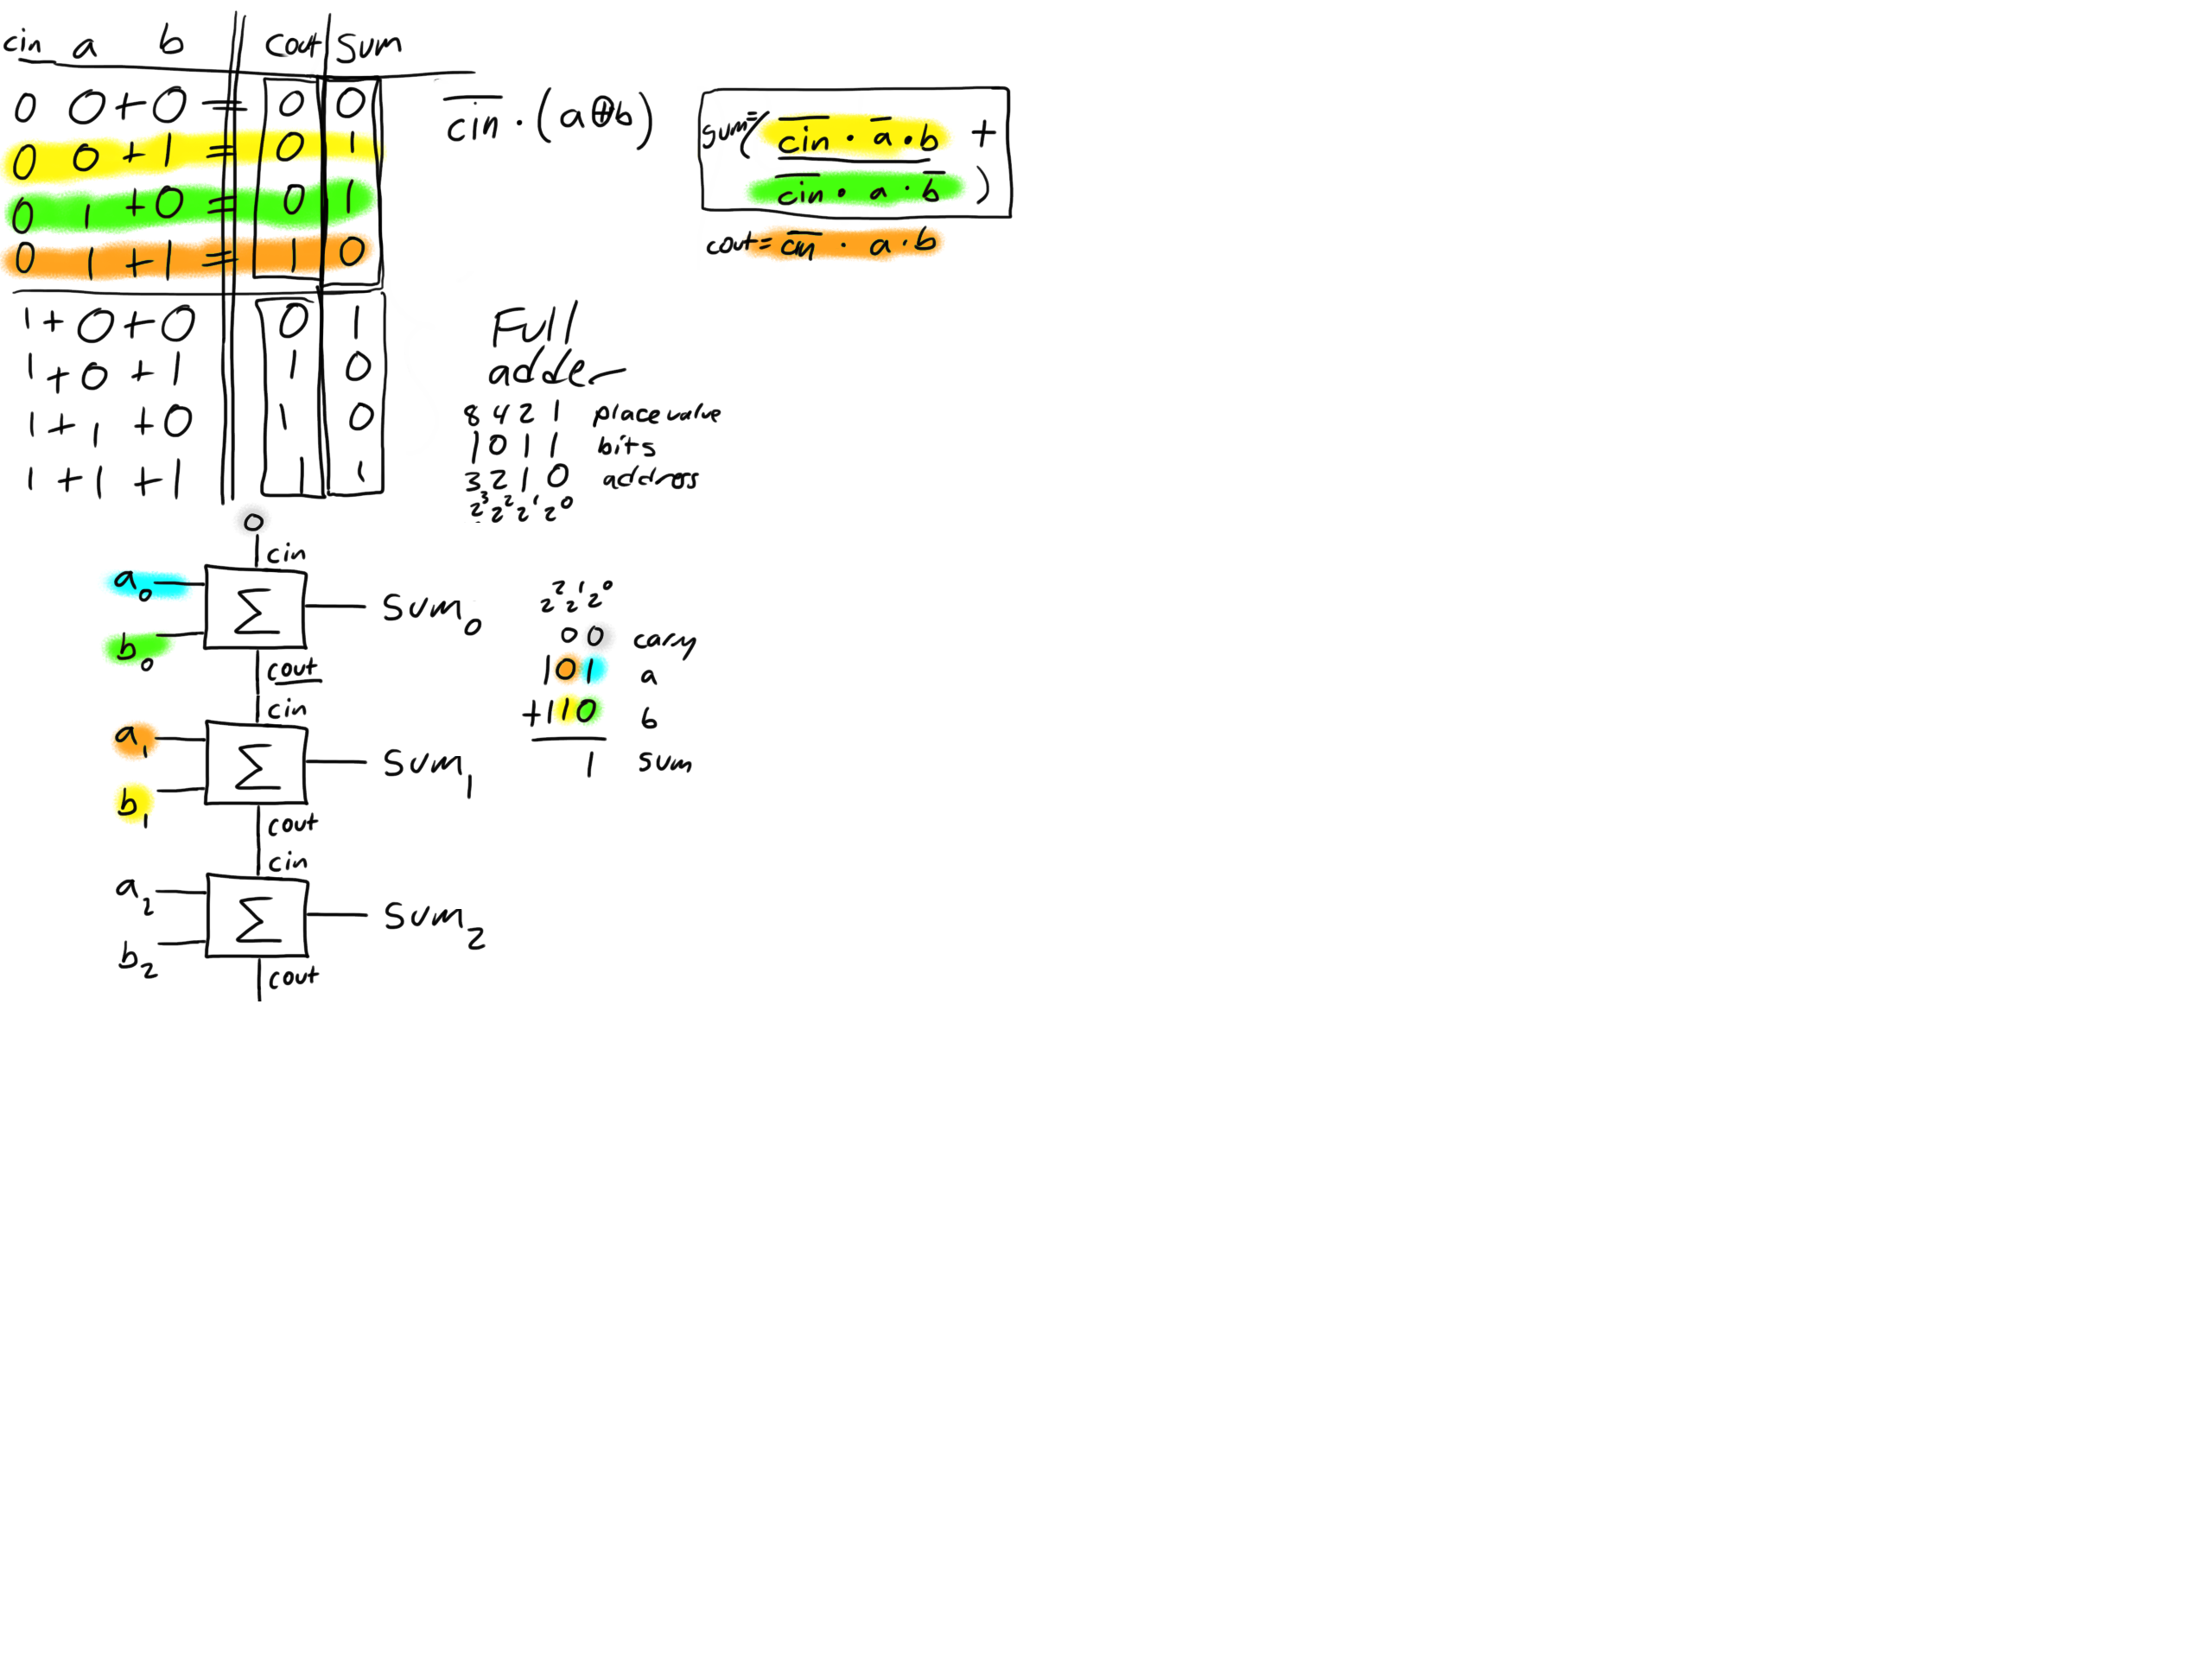 cin a b cout sum
0 0+0 = 0 0
0 0+1 = 0 1
0 1+0 = 0 1
0 1+1 = 1 0
1+0+0 0 1
1+0+1 1 0
1+1+0 1 0
1+1+1 1 1
c̅i̅n̅ · (a⊕b)
sum=( c̅i̅n̅ · a̅ · b +
c̅i̅n̅ · a · b̅ )
cout= c̅i̅n̅ · a · b
Full
adder
8 4 2 1 place value
1 0 1 1 bits
3 2 1 0 address
2³ 2² 2¹ 2⁰
0
cin
a₀
Σ
sum₀
b₀
cout
cin
a₁
Σ
sum₁
b₁
cout
cin
a₂
Σ
sum₂
b₂
cout
2² 2¹ 2⁰
0 0 carry
1 0 1 a
+1 1 0 b
1 sum